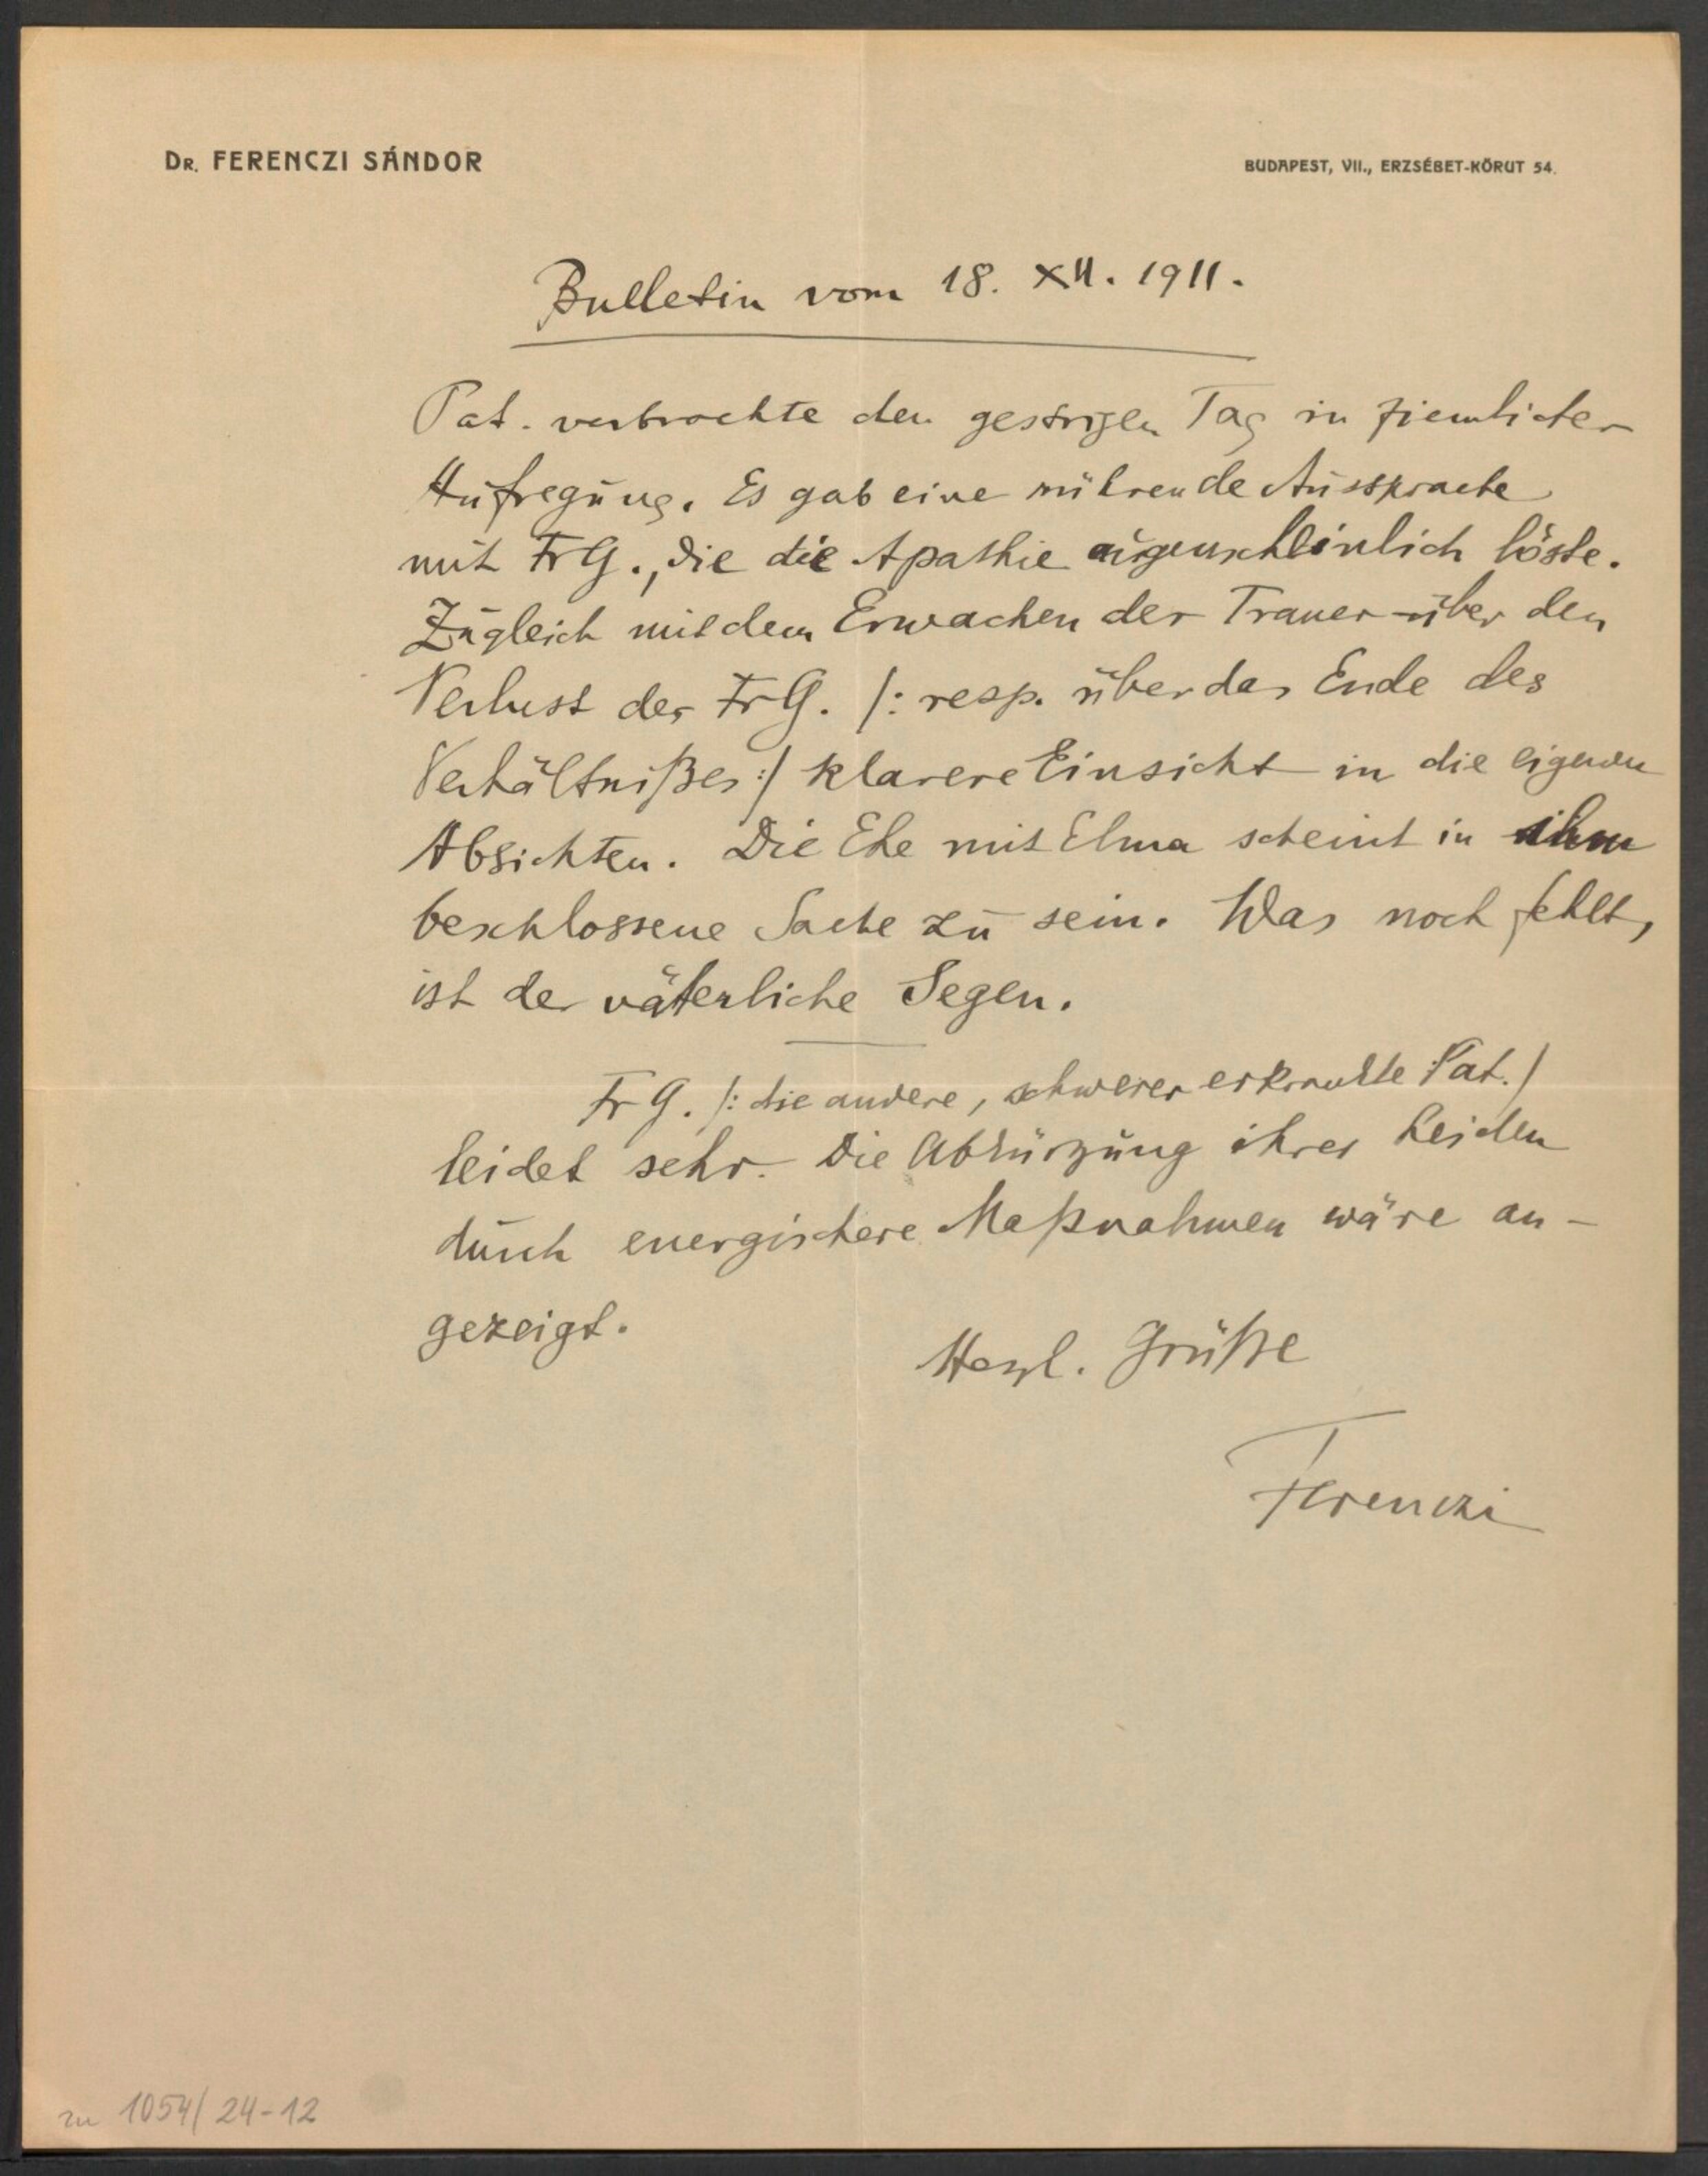 DR. FERENCZI SÁNDOR
BUDAPEST, VII., ERZSÉBET-KÖRUT 54.
Bulletin vom 18. XII. 1911.
Pat. verbrachte den gestrigen Tag in ziemlicher
Aufregung. Es gab eine rührende Aussprache
mit Fr G., die die Apathie augenscheinlich löste.
Zugleich mit dem Erwachen der Trauer über den
Verlust der Fr G. /: resp. über das Ende des
Verhältnißes :/ klarere Einsicht in die eigenen
Absichten. Die Ehe mit Elma scheint in ihm
beschlossene Sache zu sein. Was noch fehlt,
ist der väterliche Segen.
Fr G. /: die andere, schwerer erkrankte Pat. /
leidet sehr. Die Abkürzung ihres Leiden
durch energischere Maßnahmen wäre an-
gezeigt.
Herzl. Grüße
Ferenczi
zu 1054/24-12